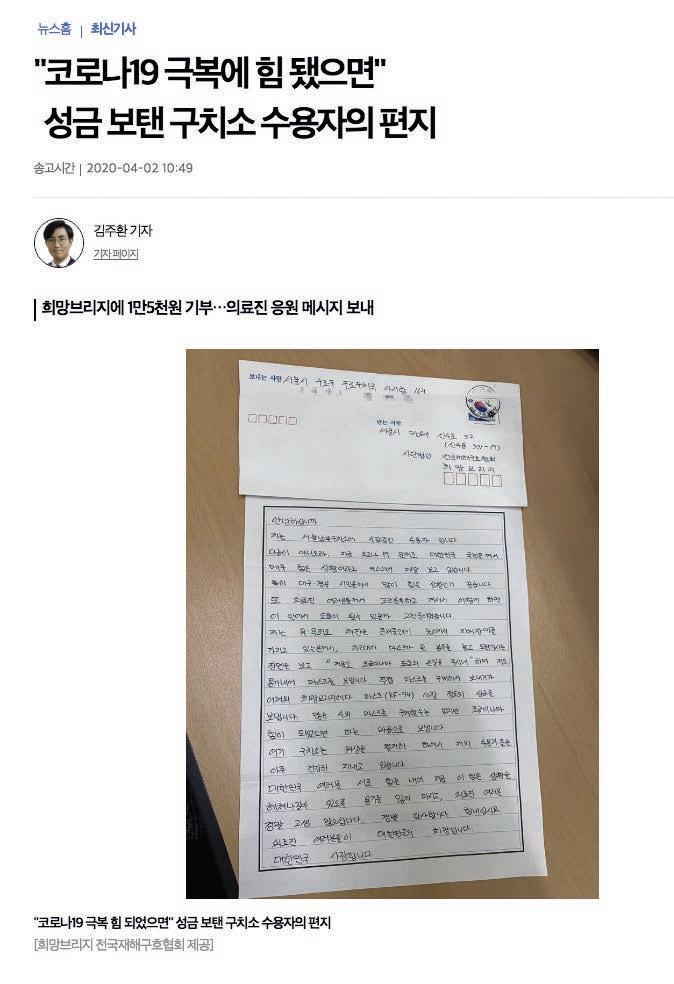 뉴스홈 | 최신기사
"코로나19 극복에 힘 됐으면"
성금 보탠 구치소 수용자의 편지
송고시간 | 2020-04-02 10:49
김주환 기자
기자 페이지
희망브리지에 1만5천원 기부…의료진 응원 메시지 보내
보내는 사람 서울시 구로구
받는 사람
서울시 마포구 52
사단법인 전국재해구호협회
희망브리지
안녕하십니까
저는 서울남부구치소에 수감중인 수용자 입니다
다름이 아니오라, 지금 코로나 19 대한민국
매우 힘든 상황이라고 뉴스에서 매일 보고 있습니다.
특히 대구·경북 시민분들께서 많이 힘든
또 의료진 여러분들께서 계셔서
이 안에서 도움이 될수 있을까
저는 재판을
가지고 마스크가 든 봉투를 놓고
장면을 보고
마스크를 보냅니다. 직접 마스크를
희망브리지에다 마스크 (KF-94) 10장 정도의 성금을
보냅니다. 많은 수의 마스크를 없지만 조금이나마
힘이 되었으면 하는 마음으로 보냅니다.
여기 구치소는 위생을 철저히 하여서 저희 수용자들은
아주 건강히 지내고 있습니다.
대한민국 여러분 서로 힘을 내어 지금 이 힘든 상황을
헤쳐나갈수 있도록 용기를 잃지 마시고, 의료진 여러분
정말 고생 많으십니다. 정말 감사합니다. 힘내십시오
의료진 여러분들이 대한민국의 희망입니다.
대한민국 사랑합니다
"코로나19 극복 힘 되었으면" 성금 보탠 구치소 수용자의 편지
[희망브리지 전국재해구호협회 제공]